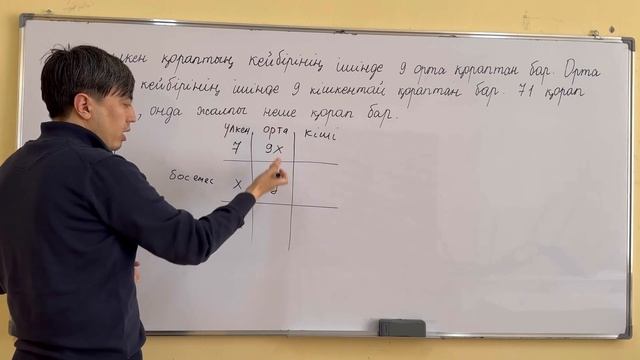 қораптың кейбірінің ішінде 9 орта қораптан бар. Орта
кейбірінің ішінде 9 кішкентай қораптан бар. 71 қорап
, онда жалпы неше қорап бар.
үлкен орта кіші
7 9x
бос емес x